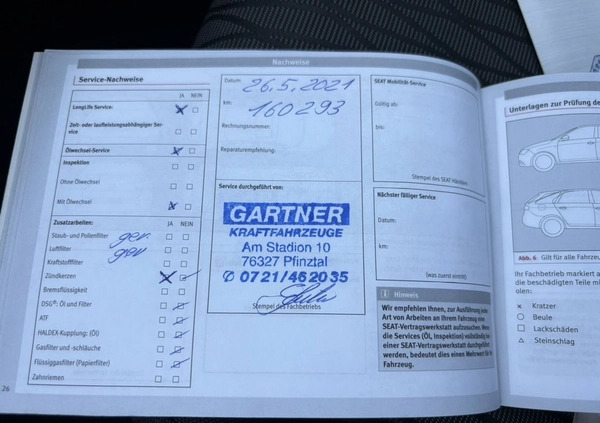 Nachweise
Service-Nachweise
JA NEIN
LongLife Service:
Zeit- oder laufleistungsabhängiger Ser-
vice
Ölwechsel-Service
Inspektion
Ohne Ölwechsel
Mit Ölwechsel
Zusatzarbeiten: JA NEIN
Staub- und Pollenfilter ger.
Luftfilter ger
Kraftstofffilter
Zündkerzen
Bremsflüssigkeit
DSG®: Öl und Filter
ATF
HALDEX-Kupplung: (Öl)
Gasfilter und -schläuche
Flüssiggasfilter (Papierfilter)
Zahnriemen
26
Datum: 26.5.2021
km: 160 293
Rechnungsnummer:
Reparaturempfehlung:
Service durchgeführt von:
GARTNER
KRAFTFAHRZEUGE
Am Stadion 10
76327 Pfinztal
✆ 0721/462035
Stempel des Fachbetriebs
SEAT Mobilität-Service
Gültig ab:
bis:
Stempel des SEAT Händlers
Nächster fälliger Service
Datum:
km:
(was zuerst eintritt)
i Hinweis
Wir empfehlen Ihnen, zur Ausführung jeder
Art von Arbeiten an Ihrem Fahrzeug eine
SEAT-Vertragswerkstatt aufzusuchen. Wenn
die Services (Öl, Inspektion) vollständig bei
einer SEAT-Vertragswerkstatt durchgeführt
werden, bedeutet dies einen Mehrwert für Ihr
Fahrzeug.
Unterlagen zur Prüfung de
Abb. 6 Gilt für alle Fahrze
Ihr Fachbetrieb markiert a
die beschädigten Teile mi
olen:
× Kratzer
○ Beule
□ Lackschäden
△ Steinschlag